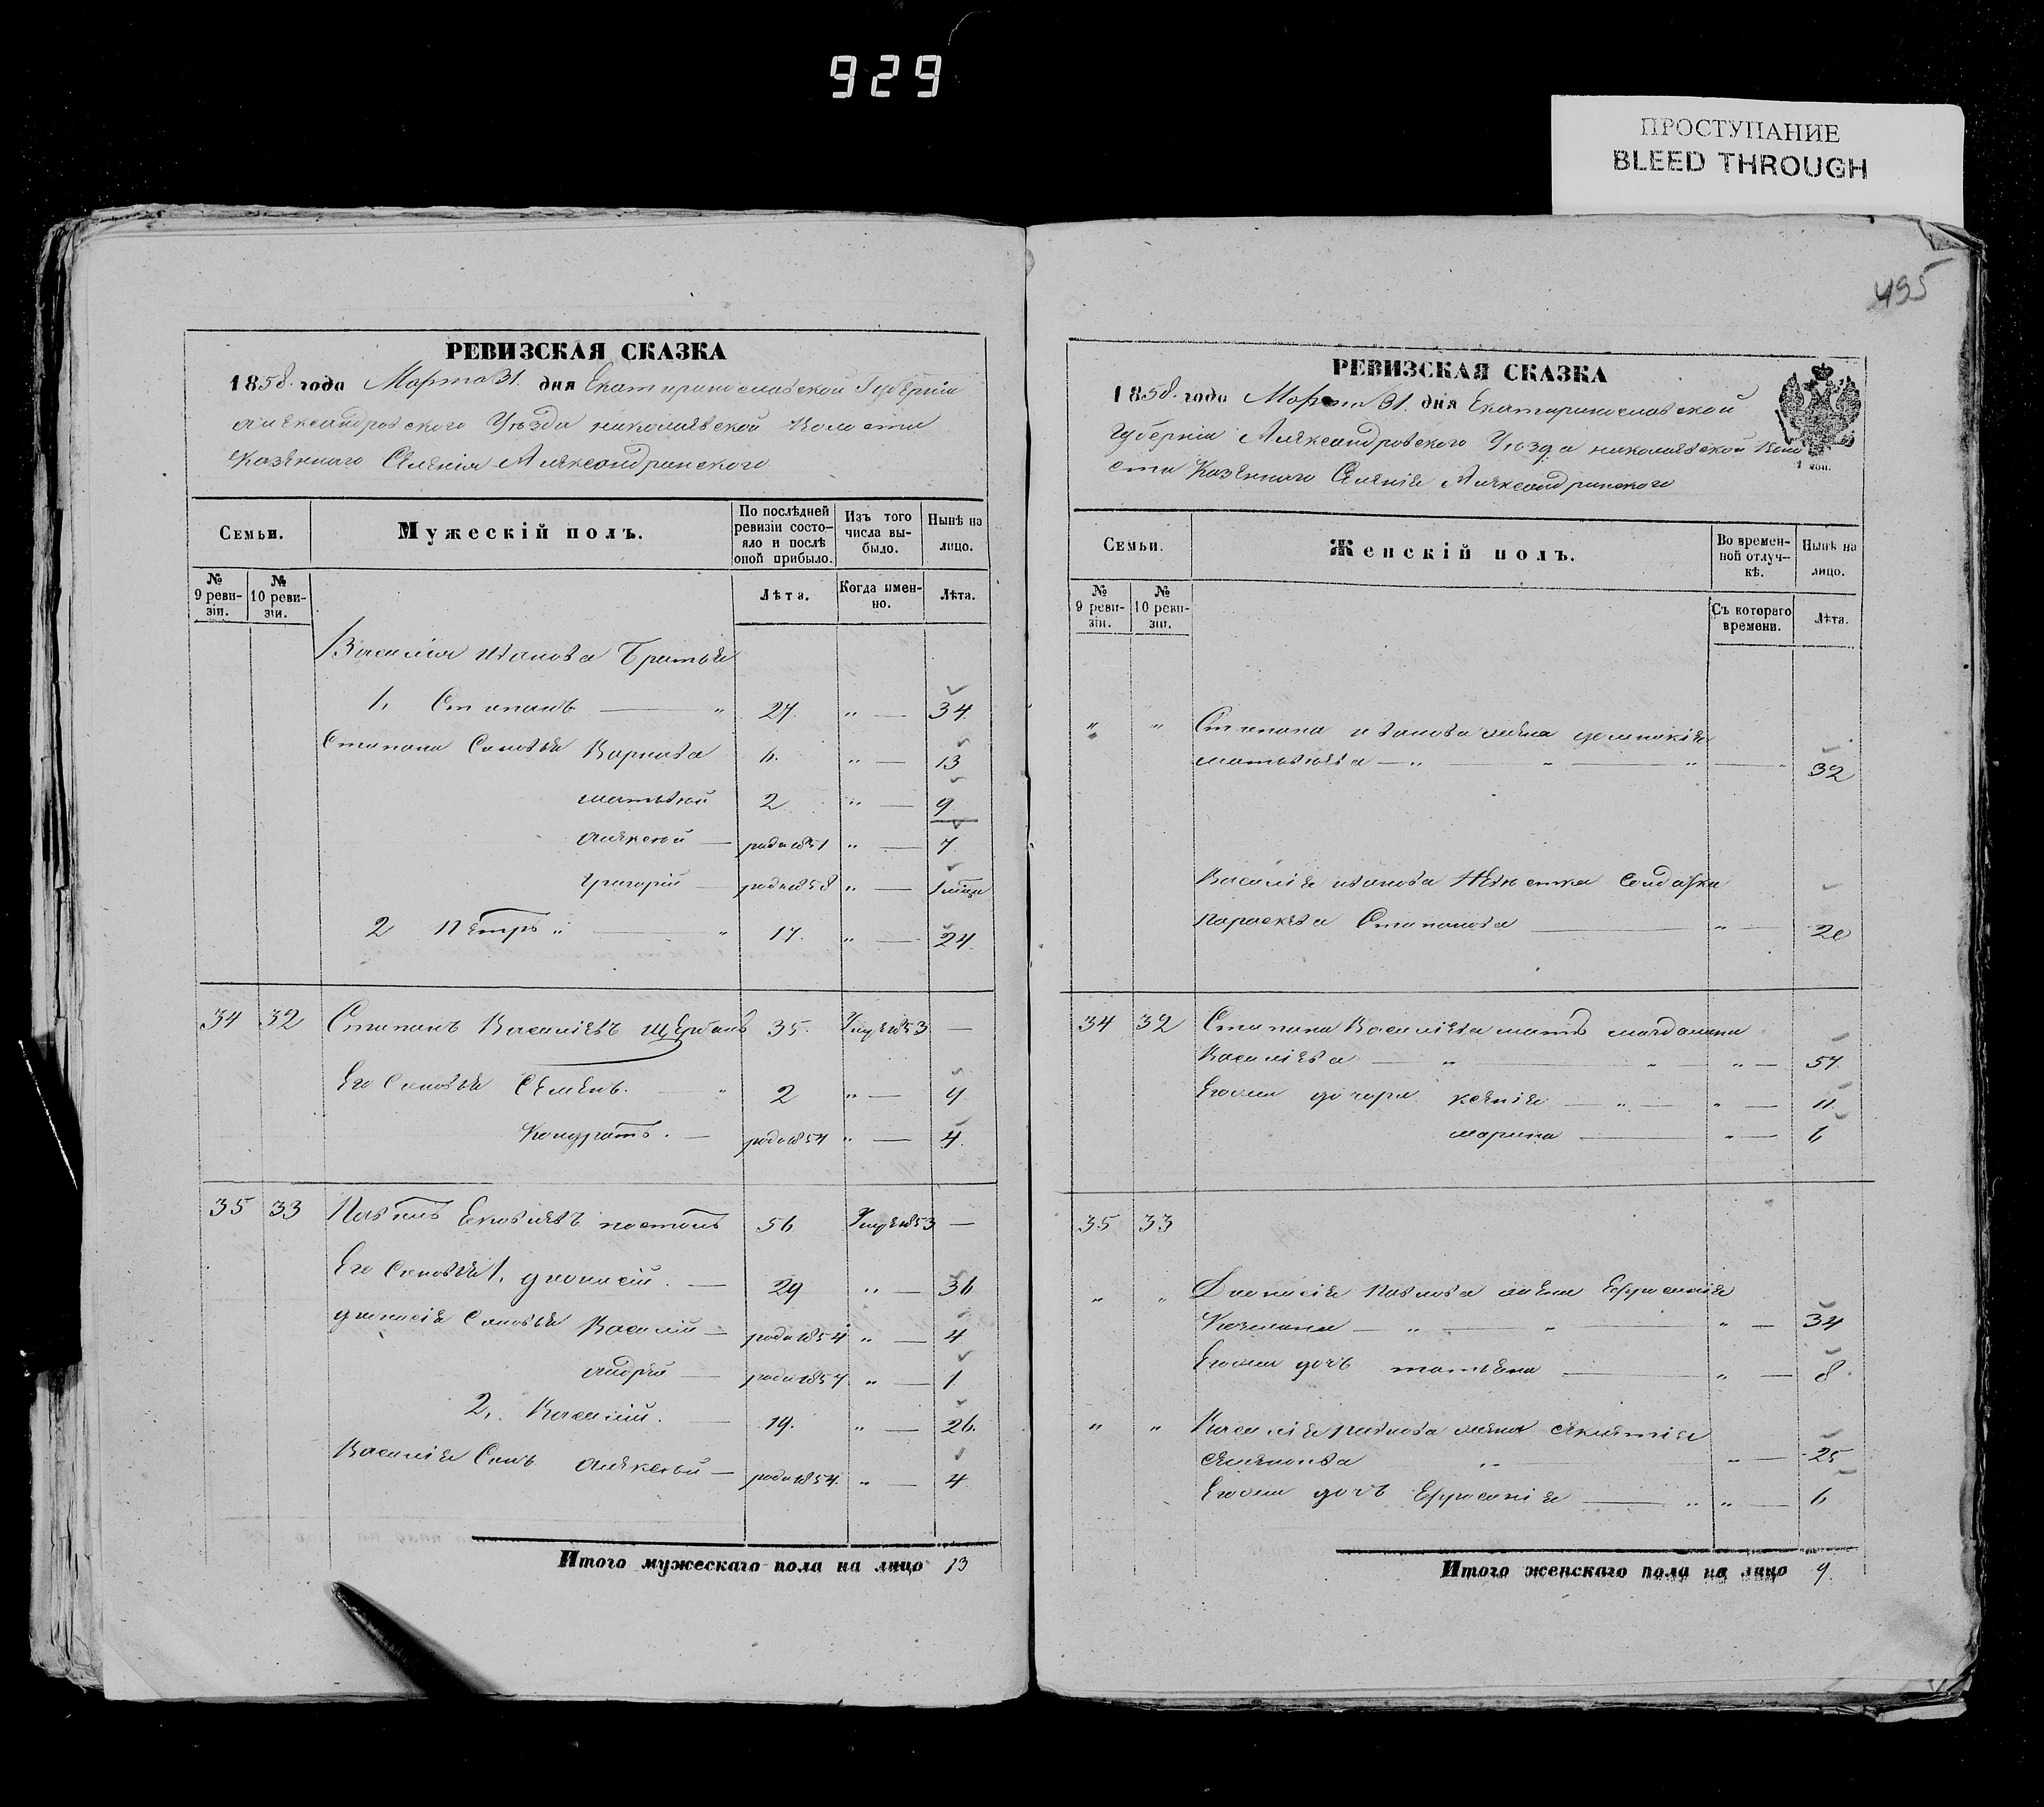 929
ПРОСТУПАНИЕ
BLEED THROUGH
495
РЕВИЗСКАЯ СКАЗКА
1858. года Марта 31. дня Екатеринославской Губерніи
Александровского Уезда николаевской Волости
Казенного Селенія Александринского
Семьи.
Мужескій полъ.
По послѣдней ревизіи состо-
яло и послѣ оной прибыло.
Изъ того числа вы-
было.
Нынѣ на лицо.
№ 9 реви-
зіи.
№ 10 реви-
зіи.
Лѣта.
Когда имен-
но.
Лѣта.
Василія Иванова Братья
1, Степанъ — " 27. " — 34.
Степана Сыновья Варнава 6. " — 13
матвей 2 " — 9
алексей — родил 1851 " — 7
григорій — родил 1858 " — 1 мѣся
2 Петръ " — " 17. " — 24.
34 32 Степанъ Васильевъ Щербань 35. Умер 1853 —
Его Сыновья Семенъ. — " 2 " — 9
Кондратъ. — родил 1854 " — 4.
35 33 Павелъ 56 Умер 1853 —
Его Сыновья 1, дионисий. — 29 " — 36
дионисія Сыновья Василий — родил 1854 " — 4
андрей — родил 1857 " — 1
2, Василий. — 19. " — 26.
Василія Сынъ алексей — родил 1854. " — 4
Итого мужескаго пола на лицо 13
РЕВИЗСКАЯ СКАЗКА
1858. года Марта 31. дня Екатеринославской
Губерніи Александровского Уезда николаевской Воло
сти Казенного Селенія Александринского
1 коп.
Семьи.
Женскій полъ.
Во времен-
ной отлуч-
кѣ.
Нынѣ на лицо.
№ 9 реви-
зіи.
№ 10 реви-
зіи.
Съ котораго времени.
Лѣта.
" " Степана иванова жена домникія
матвеева — " — " — " — " 32
Василія иванова Невестка Солдатка
параскева Степанова — " — 20
34 32 Степана Василіева мать магдалина
Василіева — " — " — " — 57.
Егоже дочери ксенія — " — " — 11.
марина — " — 6
35 33
" " Дионисія Павлова жена Ефросинія
— " — " — " — 34
Егоже дочь татьяна — " — 8.
" " Василія павлова жена
семенова " — " — 25
Егоже дочь Ефросинія — " " — 6
Итого женскаго пола на лицо 9.